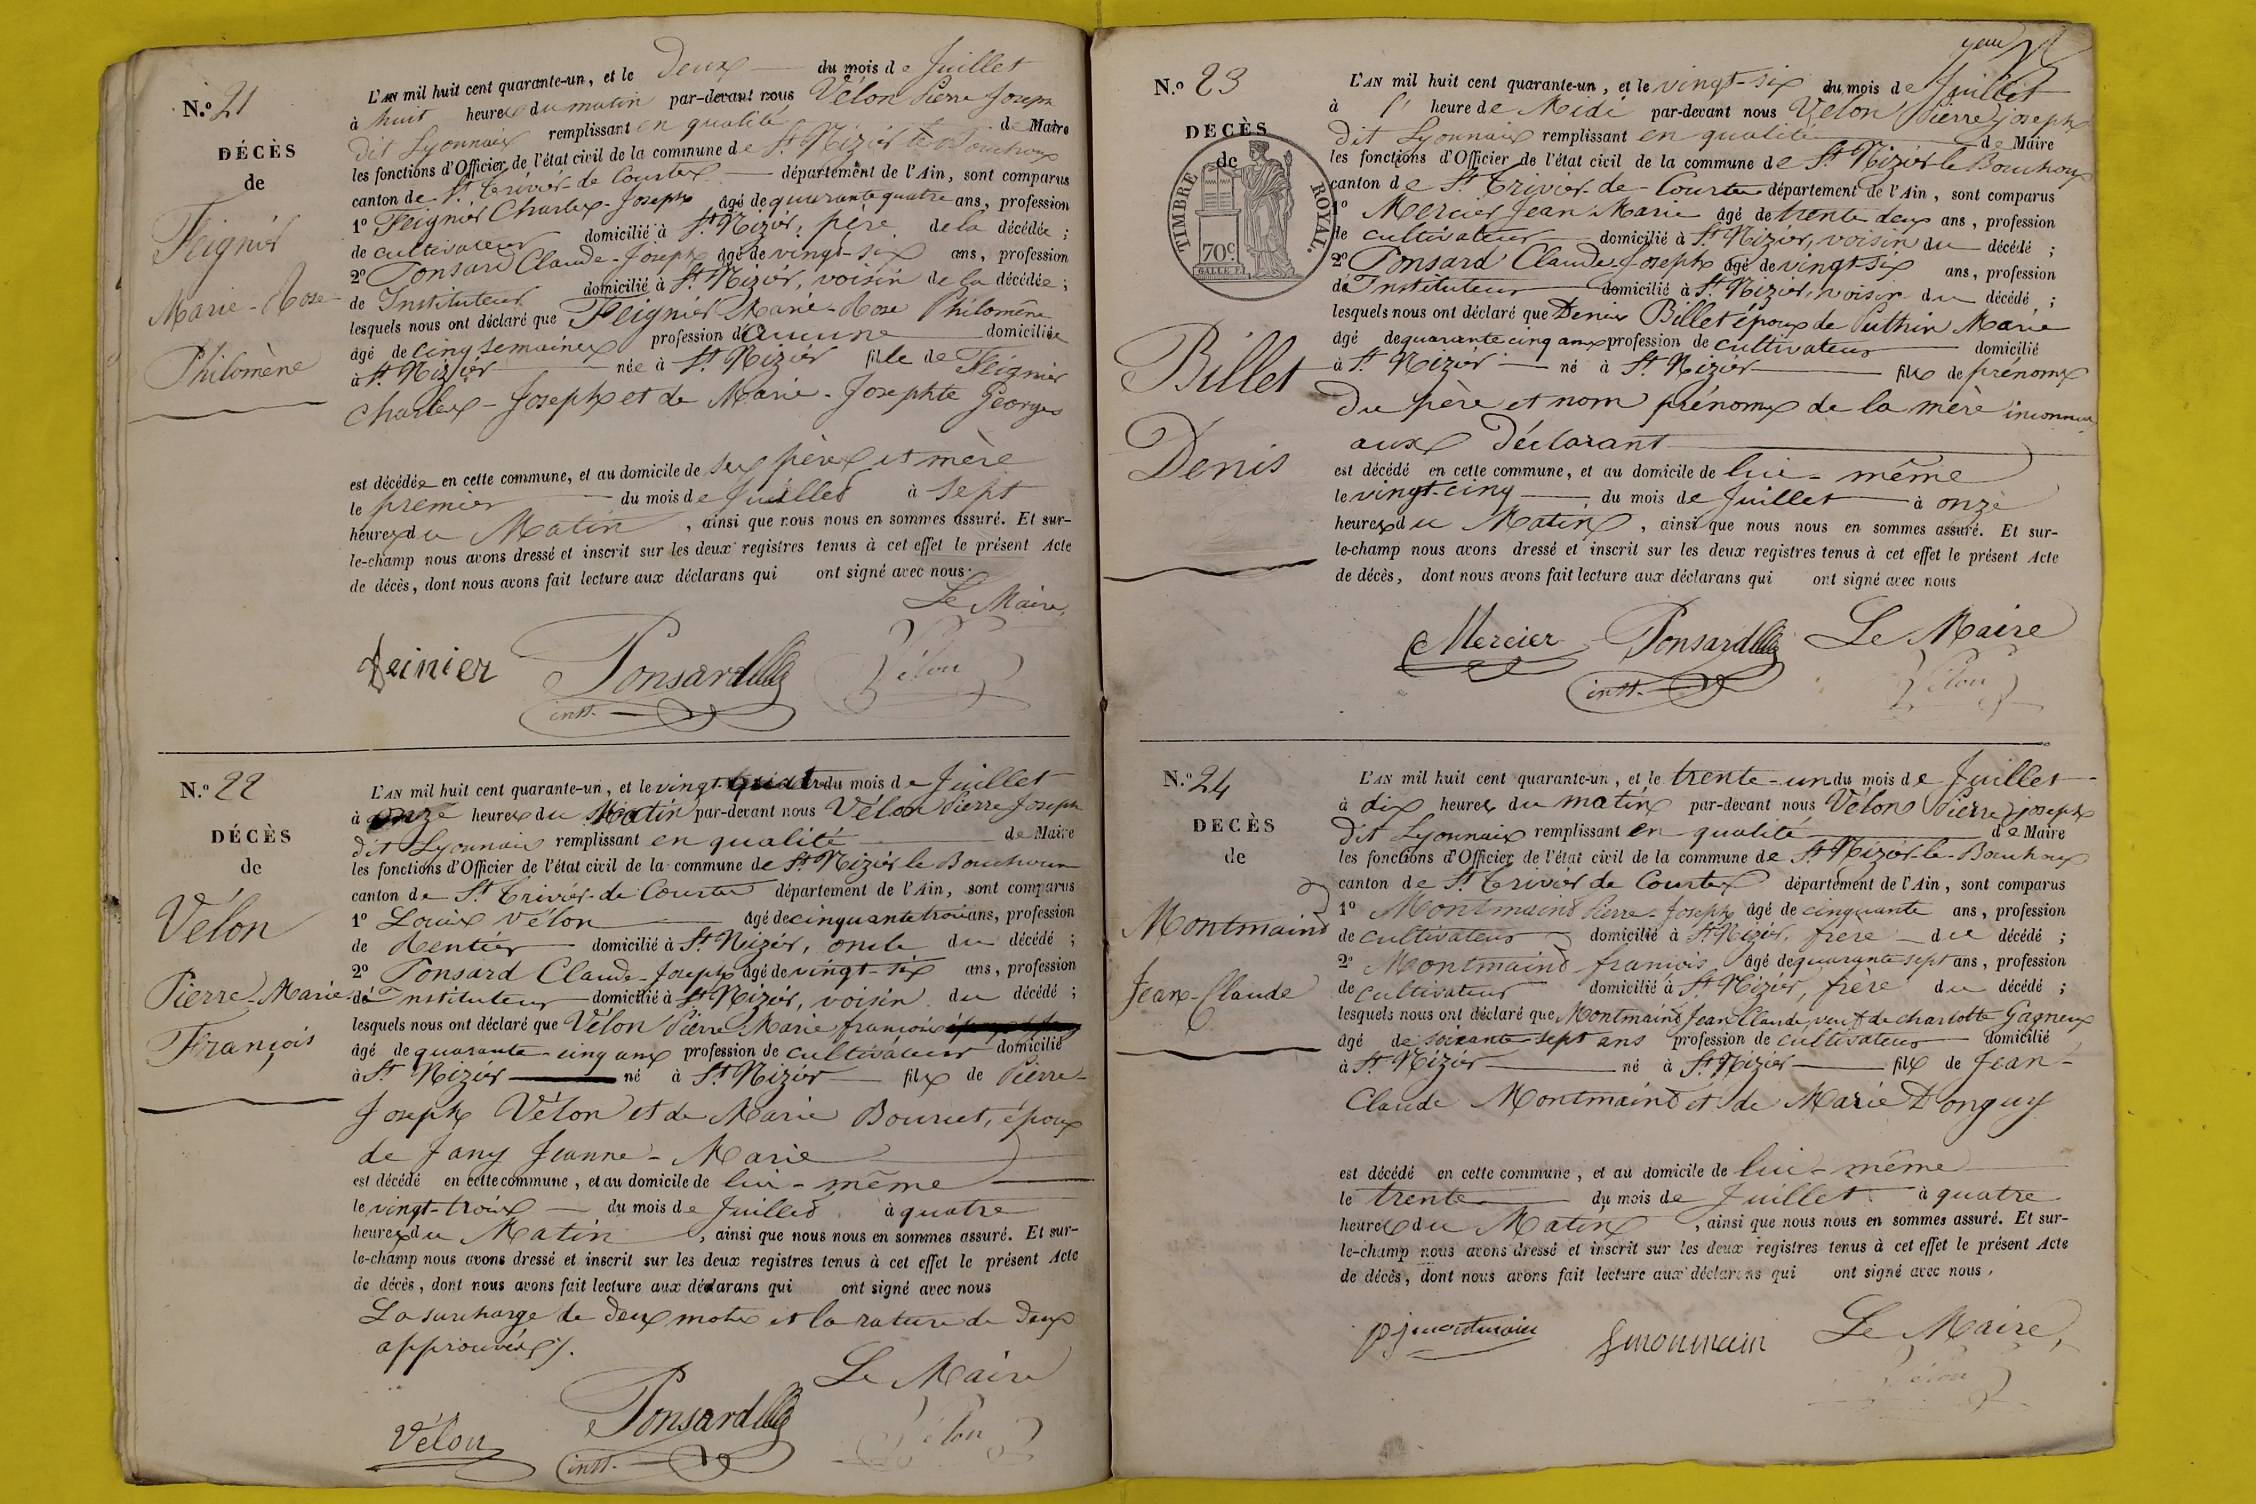 N.º 21
DÉCÈS
de
Feignier
Marie-Rose
Philomène
L'AN mil huit cent quarante-un, et le Deux du mois de Juillet
à huit heures du matin par-devant nous Vélon Pierre Joseph
dit Lyonnais remplissant en qualité de Maire
les fonctions d'Officier de l'état civil de la commune de St Nizier le Bouchoux
canton de St Trivier-de Courtes département de l'Ain, sont comparus
1º Feignier Charles-Joseph âgé de quarante quatre ans, profession
de cultivateur domicilié à St Nizier, père de la décédée ;
2º Ponsard Claude-Joseph âgé de vingt-six ans, profession
de Instituteur domicilié à St Nizier, voisin de la décédée ;
lesquels nous ont déclaré que Feignier Marie-Rose Philomène
âgé de cinq semaines profession d'aucune domiciliée
à St Nizier née à St Nizier fille de Feignier
Charles-Joseph et de Marie-Josephte Georges
est décédée en cette commune, et au domicile de ses père et mère
le premier du mois de Juillet à sept
heures du Matin, ainsi que nous nous en sommes assuré. Et sur-
le-champ nous avons dressé et inscrit sur les deux registres tenus à cet effet le présent Acte
de décès, dont nous avons fait lecture aux déclarans qui ont signé avec nous.
Le Maire,
feinier Ponsard Vélon
inst.
N.º 22
DÉCÈS
de
Vélon
Pierre-Marie
François
L'AN mil huit cent quarante-un, et le vingt-quatre du mois de Juillet
à onze heures du Matin par-devant nous Vélon Pierre Joseph
dit Lyonnais remplissant en qualité de Maire
les fonctions d'Officier de l'état civil de la commune de St Nizier le Bouchoux
canton de St Trivier-de Courtes département de l'Ain, sont comparus
1º Louis Vélon âgé de cinquante trois ans, profession
de Rentier domicilié à St Nizier, oncle du décédé ;
2º Ponsard Claude-Joseph âgé de vingt-six ans, profession
de Instituteur domicilié à St Nizier, voisin du décédé ;
lesquels nous ont déclaré que Vélon Pierre Marie françois
âgé de quarante-cinq ans profession de cultivateur domicilié
à St Nizier né à St Nizier fils de Pierre-
Joseph Vélon et de Marie Bourcet, époux
de Jany Jeanne-Marie
est décédé en cette commune, et au domicile de lui-même
le vingt-trois du mois de Juillet à quatre
heures du Matin, ainsi que nous nous en sommes assuré. Et sur-
le-champ nous avons dressé et inscrit sur les deux registres tenus à cet effet le présent Acte
de décès, dont nous avons fait lecture aux déclarans qui ont signé avec nous
La surcharge de deux mots et la rature de deux
approuvées /.
Le Maire
Vélon Ponsard Vélon
inst.
N.º 23
DECÈS
de
TIMBRE ROYAL.
70 c.
Billet
Denis
L'AN mil huit cent quarante-un, et le vingt-six du mois de Juillet
à l' heure de Midi par-devant nous Vélon Pierre Joseph
dit Lyonnais remplissant en qualité de Maire
les fonctions d'Officier de l'état civil de la commune de St Nizier-le Bouchoux
canton de St Trivier-de-Courtes département de l'Ain, sont comparus
1º Mercier Jean Marie âgé de trente deux ans, profession
de cultivateur domicilié à St Nizier, voisin du décédé ;
2º Ponsard Claude Joseph âgé de vingt-six ans, profession
de Instituteur domicilié à St Nizier, voisin du décédé ;
lesquels nous ont déclaré que Denis Billet époux de Puthin Marie
âgé de quarante cinq ans profession de cultivateur domicilié
à St Nizier né à St Nizier fils de prénoms
du père et nom prénoms de la mère inconnus
aux déclarant
est décédé en cette commune, et au domicile de lui-même
le vingt-cinq du mois de Juillet à onze
heures du Matin, ainsi que nous nous en sommes assuré. Et sur-
le-champ nous avons dressé et inscrit sur les deux registres tenus à cet effet le présent Acte
de décès, dont nous avons fait lecture aux déclarans qui ont signé avec nous
Mercier Ponsard Le Maire
inst. Vélon
N.º 24
DECÈS
de
Montmaind
Jean-Claude
L'AN mil huit cent quarante-un, et le trente-un du mois de Juillet
à dix heures du matin par-devant nous Vélon Pierre Joseph
dit Lyonnais remplissant en qualité de Maire
les fonctions d'Officier de l'état civil de la commune de St Nizier-le-Bouchoux
canton de St Trivier de Courtes département de l'Ain, sont comparus
1º Montmaind Pierre-Joseph âgé de cinquante ans, profession
de cultivateur domicilié à St Nizier, frere du décédé ;
2º Montmaind françois âgé de quarante sept ans, profession
de cultivateur domicilié à St Nizier, frère du décédé ;
lesquels nous ont déclaré que Montmaind Jean Claude, veuf de charlotte Gagneux
âgé de soixante-sept ans profession de cultivateur domicilié
à St Nizier né à St Nizier fils de Jean-
Claude Montmaind et de Marie Donguy
est décédé en cette commune, et au domicile de lui-même
le trente du mois de Juillet à quatre
heures du Matin, ainsi que nous nous en sommes assuré. Et sur-
le-champ nous avons dressé et inscrit sur les deux registres tenus à cet effet le présent Acte
de décès, dont nous avons fait lecture aux déclarans qui ont signé avec nous.
pjmontmain fmonmain Le Maire,
Vélon